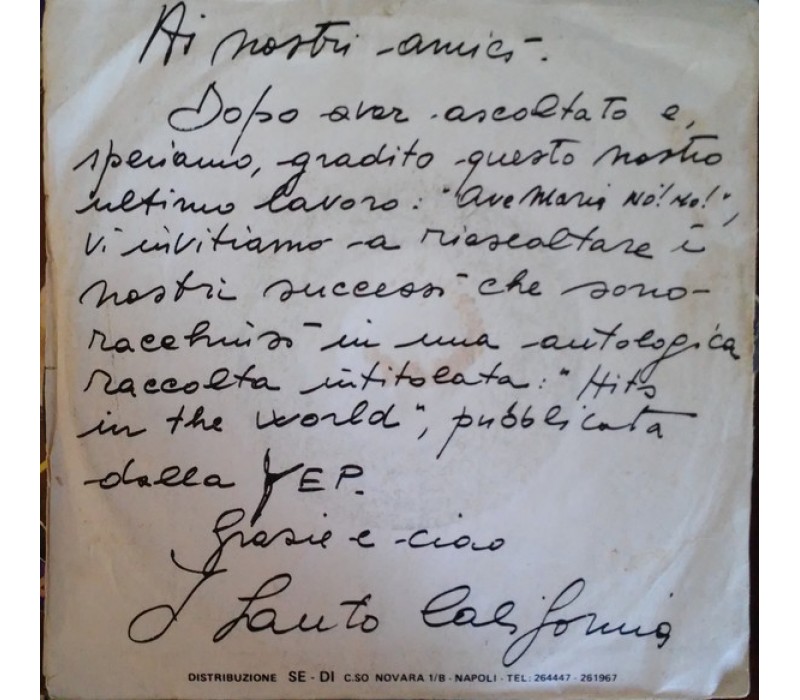 Ai nostri amici.
Dopo aver ascoltato e,
speriamo, gradito questo nostro
ultimo lavoro: "Ave Maria NÓ! No!",
vi invitiamo a riascoltare i
nostri successi che sono
racchiusi in una antologica
raccolta intitolata: "Hits
in the world", pubblicata
dalla YEP.
Grazie e ciao
I Santo California
DISTRIBUZIONE SE - DI C.SO NOVARA 1/B - NAPOLI - TEL: 264447 - 261967